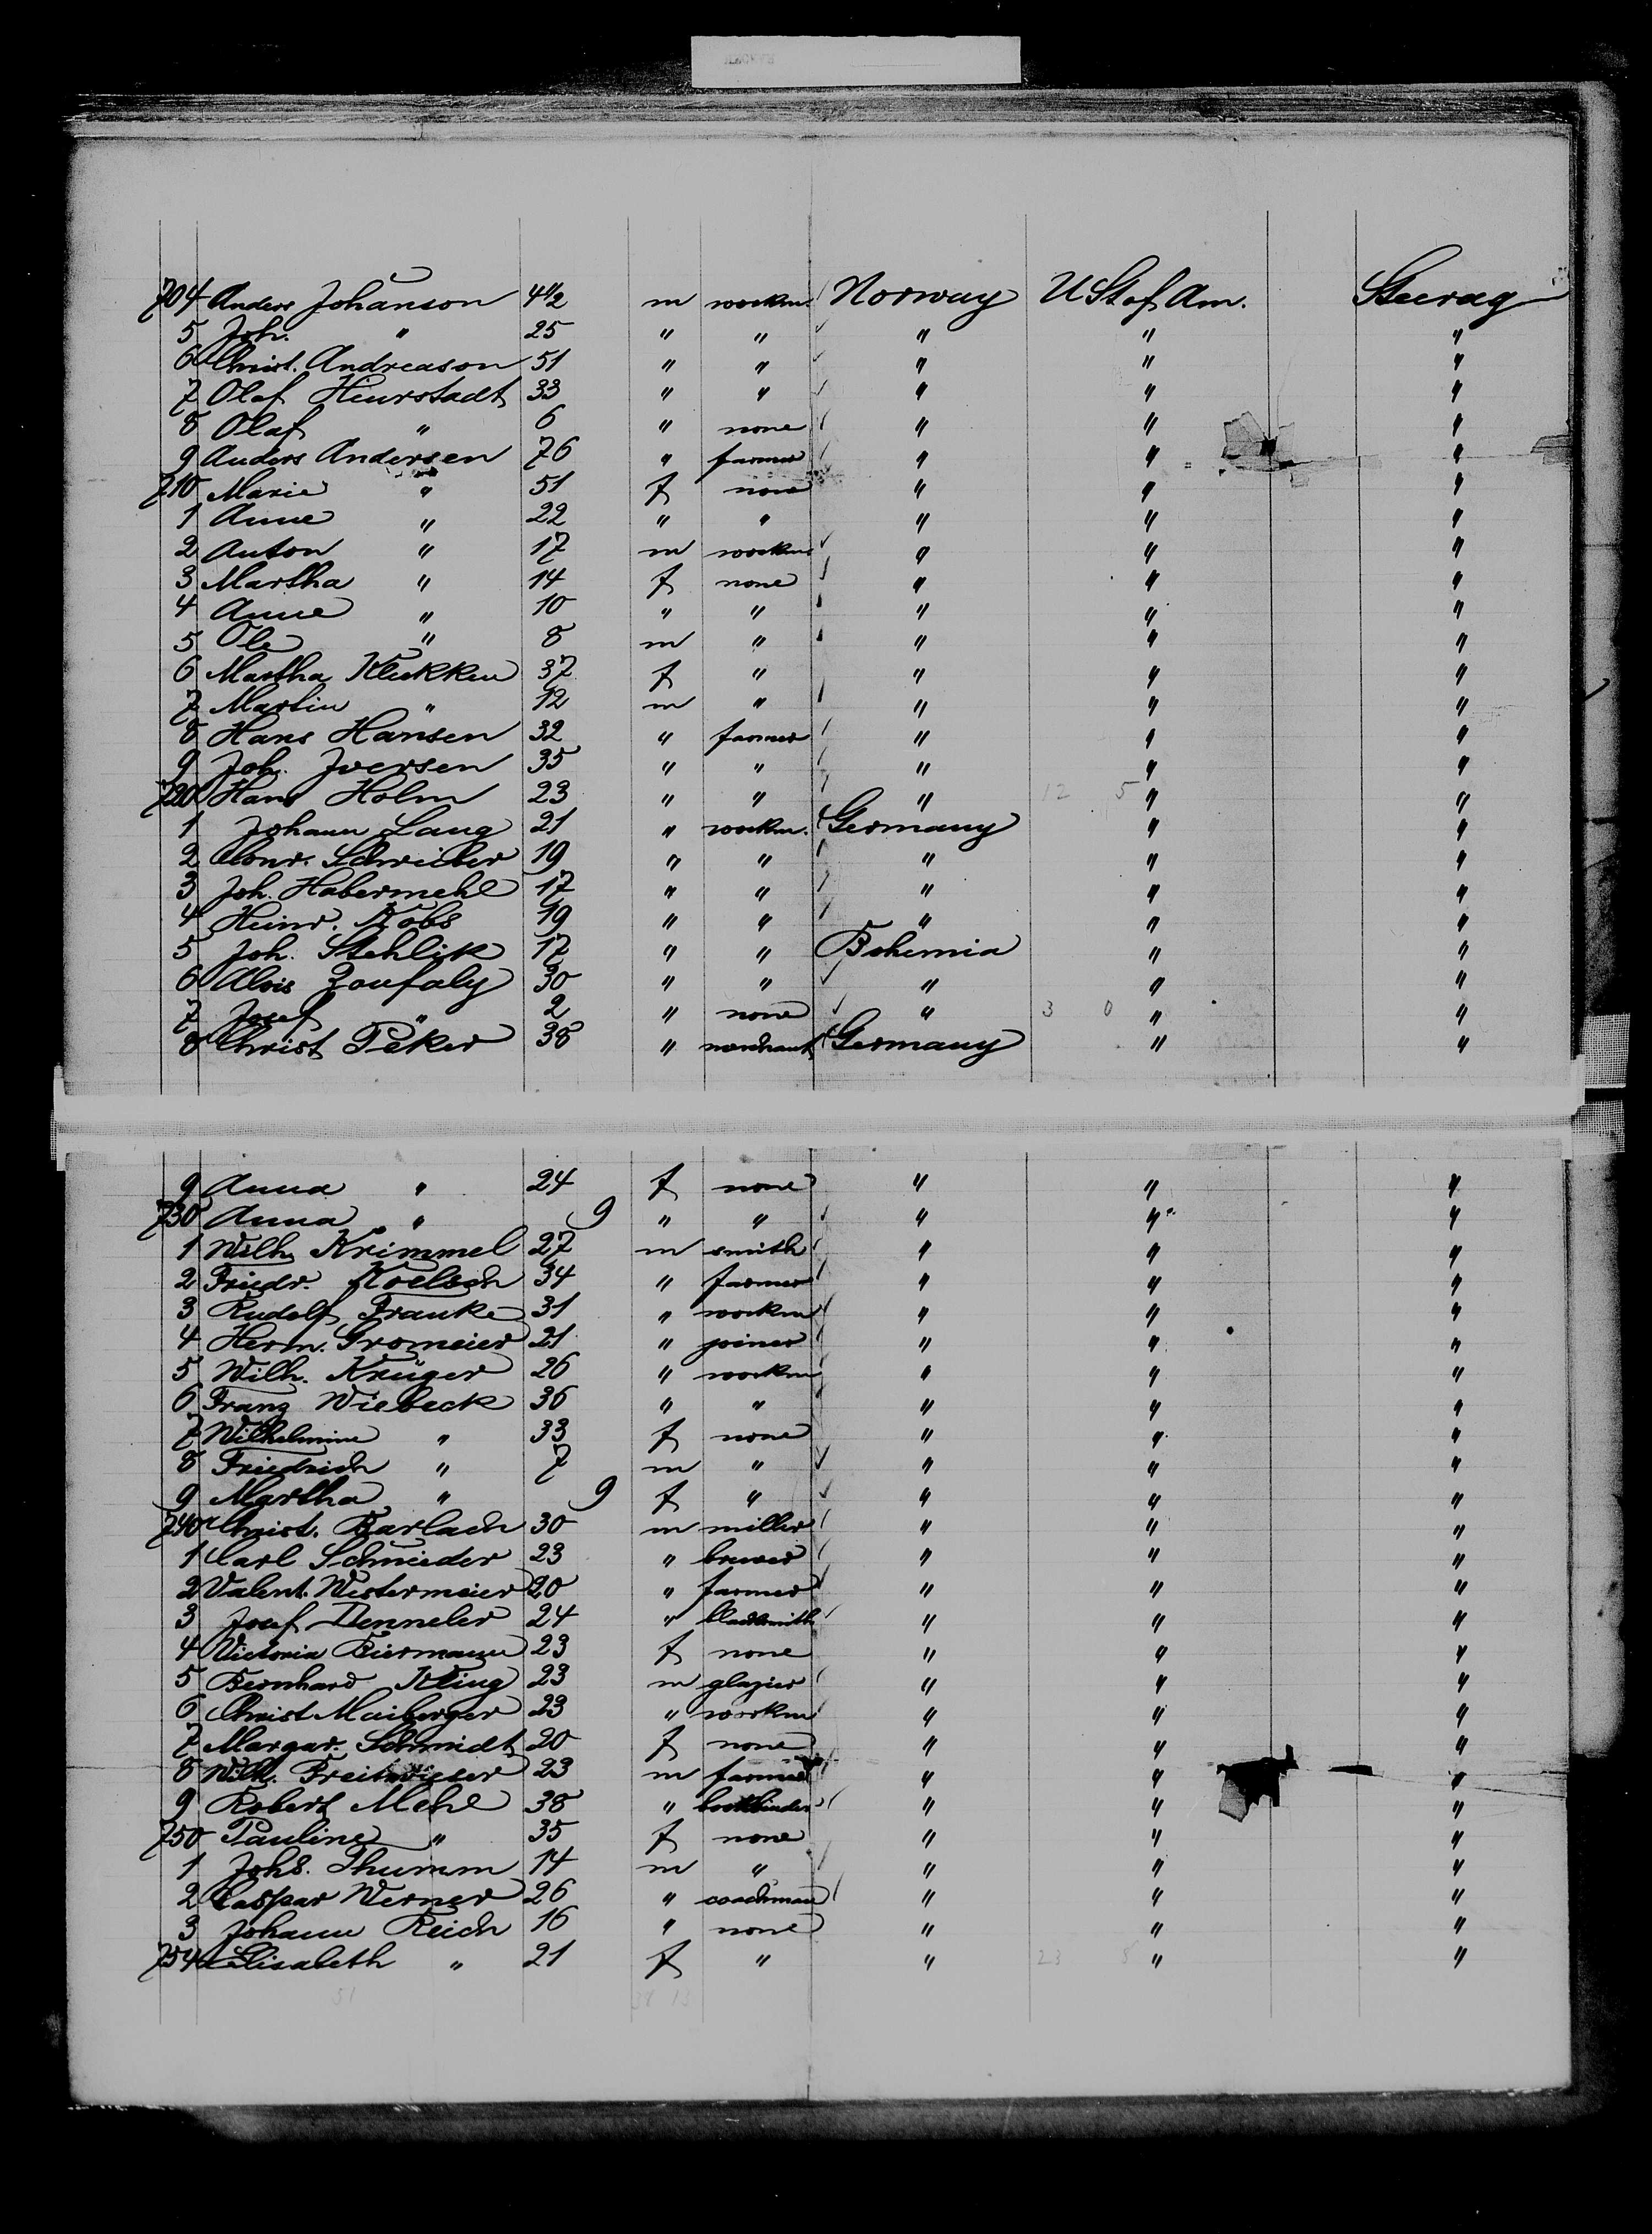 704 Anders Johanson 41/2 m workm. Norway U St of Am. Steerag
5 Joh. " 25 " " " " "
6 Christ. Andreason 51 " " " " "
7 Olaf Hiurstadt 33 " " " " "
8 Olaf " 6 " none " " "
9 Anders Andersen 76 " farmer " " "
710 Marie " 51 f none " " "
1 Anne " 22 " " " " "
2 Anton " 17 m workm " " "
3 Martha " 14 f none " " "
4 Anne " 10 " " " " "
5 Ole " 8 m " " " "
6 Martha Klukken 37 f " " " "
7 Martin " 12 m " " " "
8 Hans Hansen 32 " farmer " " "
9 Joh. Iversen 35 " " " " "
720 Hans Holm 23 " " " 12 5 " "
1 Johann Lang 21 " workm. Germany " "
2 Conr. Schreiber 19 " " " " "
3 Joh. Habermehl 17 " " " " "
4 Heinr. Kobs 19 " " " " "
5 Joh. Stehlik 17 " " Bohemia " "
6 Alois Zoufaly 30 " " " " "
7 Josef " 2 " none " 3 0 " "
8 Christ Peker 38 " merchant Germany " "
9 Anna " 24 f none " " "
730 Anna " 9 " " " " "
1 Wilh. Krimmel 27 m smith " " "
2 Friedr. Koelsch 34 " farmer " " "
3 Rudolf Franke 31 " workm " " "
4 Herm. Gromeier 21 " joiner " " "
5 Wilh. Krüger 26 " workm " " "
6 Franz Wiebeck 36 " " " " "
7 Wilhelmine " 33 f none " " "
8 Friedrich " 7 m " " " "
9 Martha " 9 f " " " "
740 Christ. Barlach 30 m miller " " "
1 Carl Schmieder 23 " brewer " " "
2 Valent. Westermeier 20 " farmer " " "
3 Josef Denneler 24 " blacksmith " " "
4 Victoria Biermann 23 f none " " "
5 Bernhard Kling 23 m glazier " " "
6 Christ Maiberger 23 " workm " " "
7 Margar. Schmidt 20 f none " " "
8 Wilh. Breitwieser 23 m farmer " " "
9 Robert Mehl 38 " bookbinder " " "
750 Pauline " 35 f none " " "
1 Johs. Thumm 14 m " " " "
2 Caspar Werner 26 " coachman " " "
3 Johann Reich 16 " none " " "
754 Elisabeth " 21 f " " 23 8 " "
51 38 13